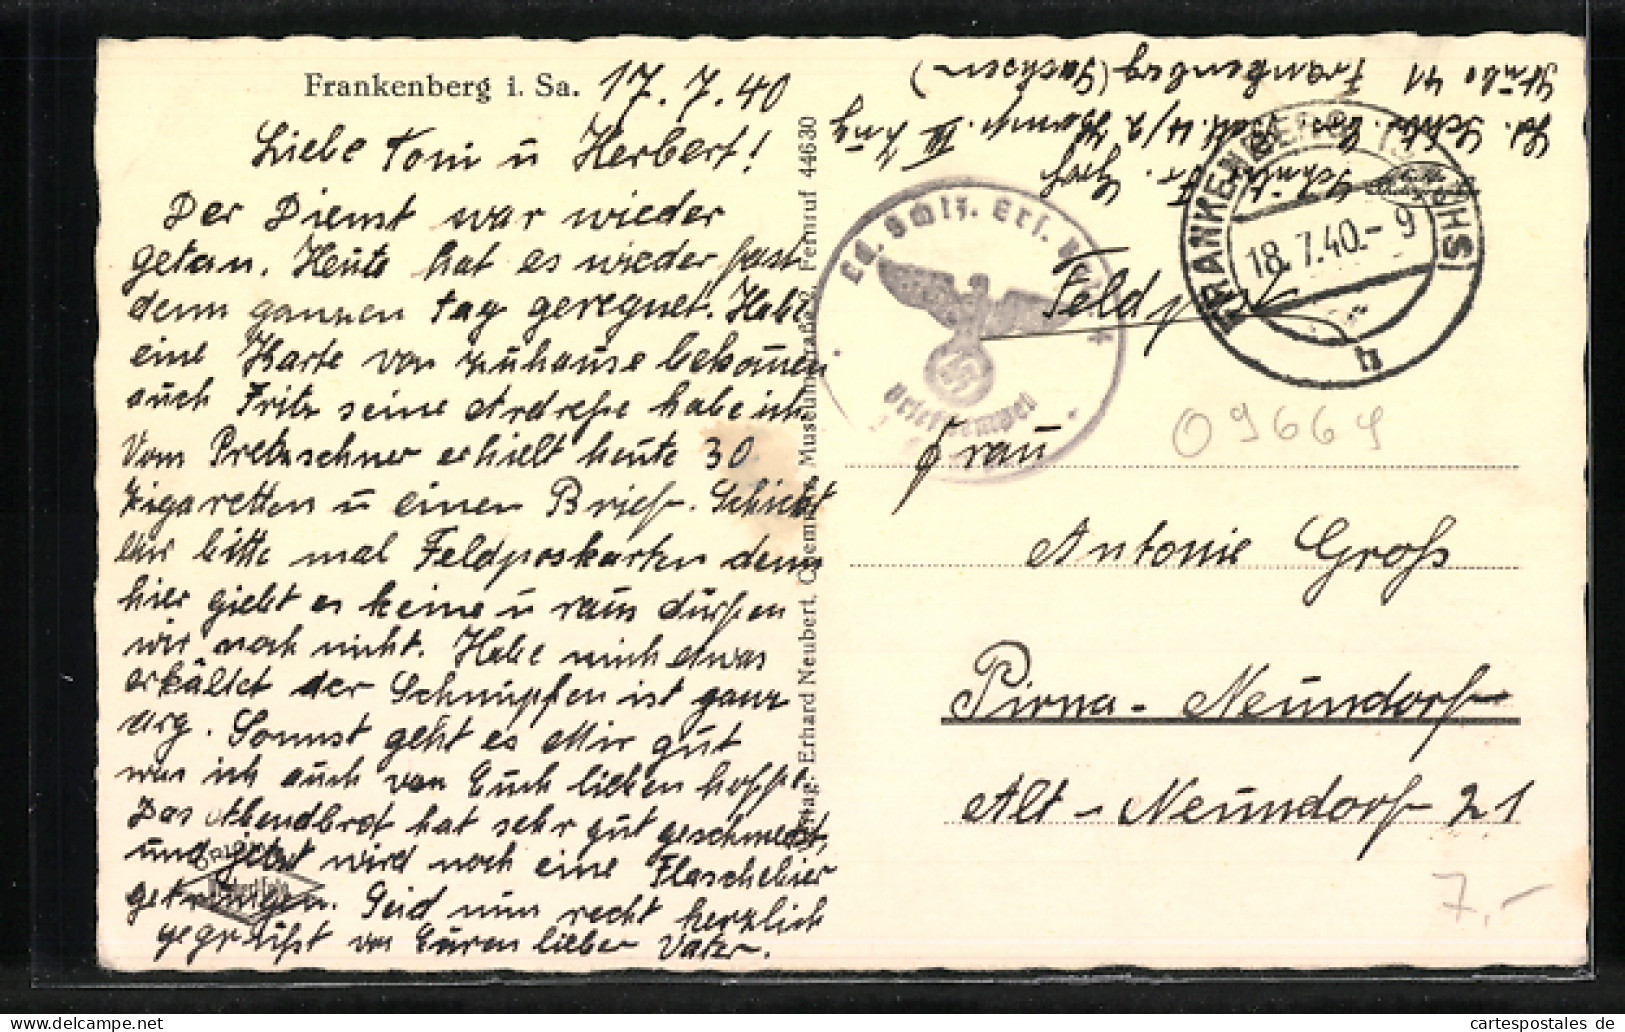 Frankenberg i. Sa. 17.7.40
Liebe Toni u Herbert!
Der Dienst war wieder
getan. Heute hat es wieder fast
denn ganzen Tag geregnet. Habe
eine Karte von zuhause bekomen
auch Fritz seine Adresse habe ich.
Vom Pretzschner erhielt heute 30
Zigaretten u einen Brief. Schickt
Mir bitte mal Feldposkarten denn
hier giebt es keine u raus dürfen
wir noch nicht. Habe mich etwas
erkältet der Schnupfen ist ganz
arg. Sonnst geht es Mir gut
was ich auch von Euch lieben hoffe.
Das Abendbrot hat sehr gut geschmeckt,
und jetzt wird noch eine Flaschebier
getrunken. Seid nun recht herzlich
gegrüßt von Euren lieber Vater.
Verlag: Erhard Neubert, Chemnitz, Museumstraße Fernruf 44630
Stube 41 Frankenberg (Sachsen)
Ld. Schtz. Ers. Batl. 4/ Komp. III Zug
Schütze Groß
Feldpost
FRANKENBERG (SACHS)
18.7.40.-9
b
Ld. Schtz. Ers. Batl. 4
Briefstempel
09669
Frau
Antonie Groß
Pirna-Neundorf
Alt-Neundorf 21
7,-
cartespostales de